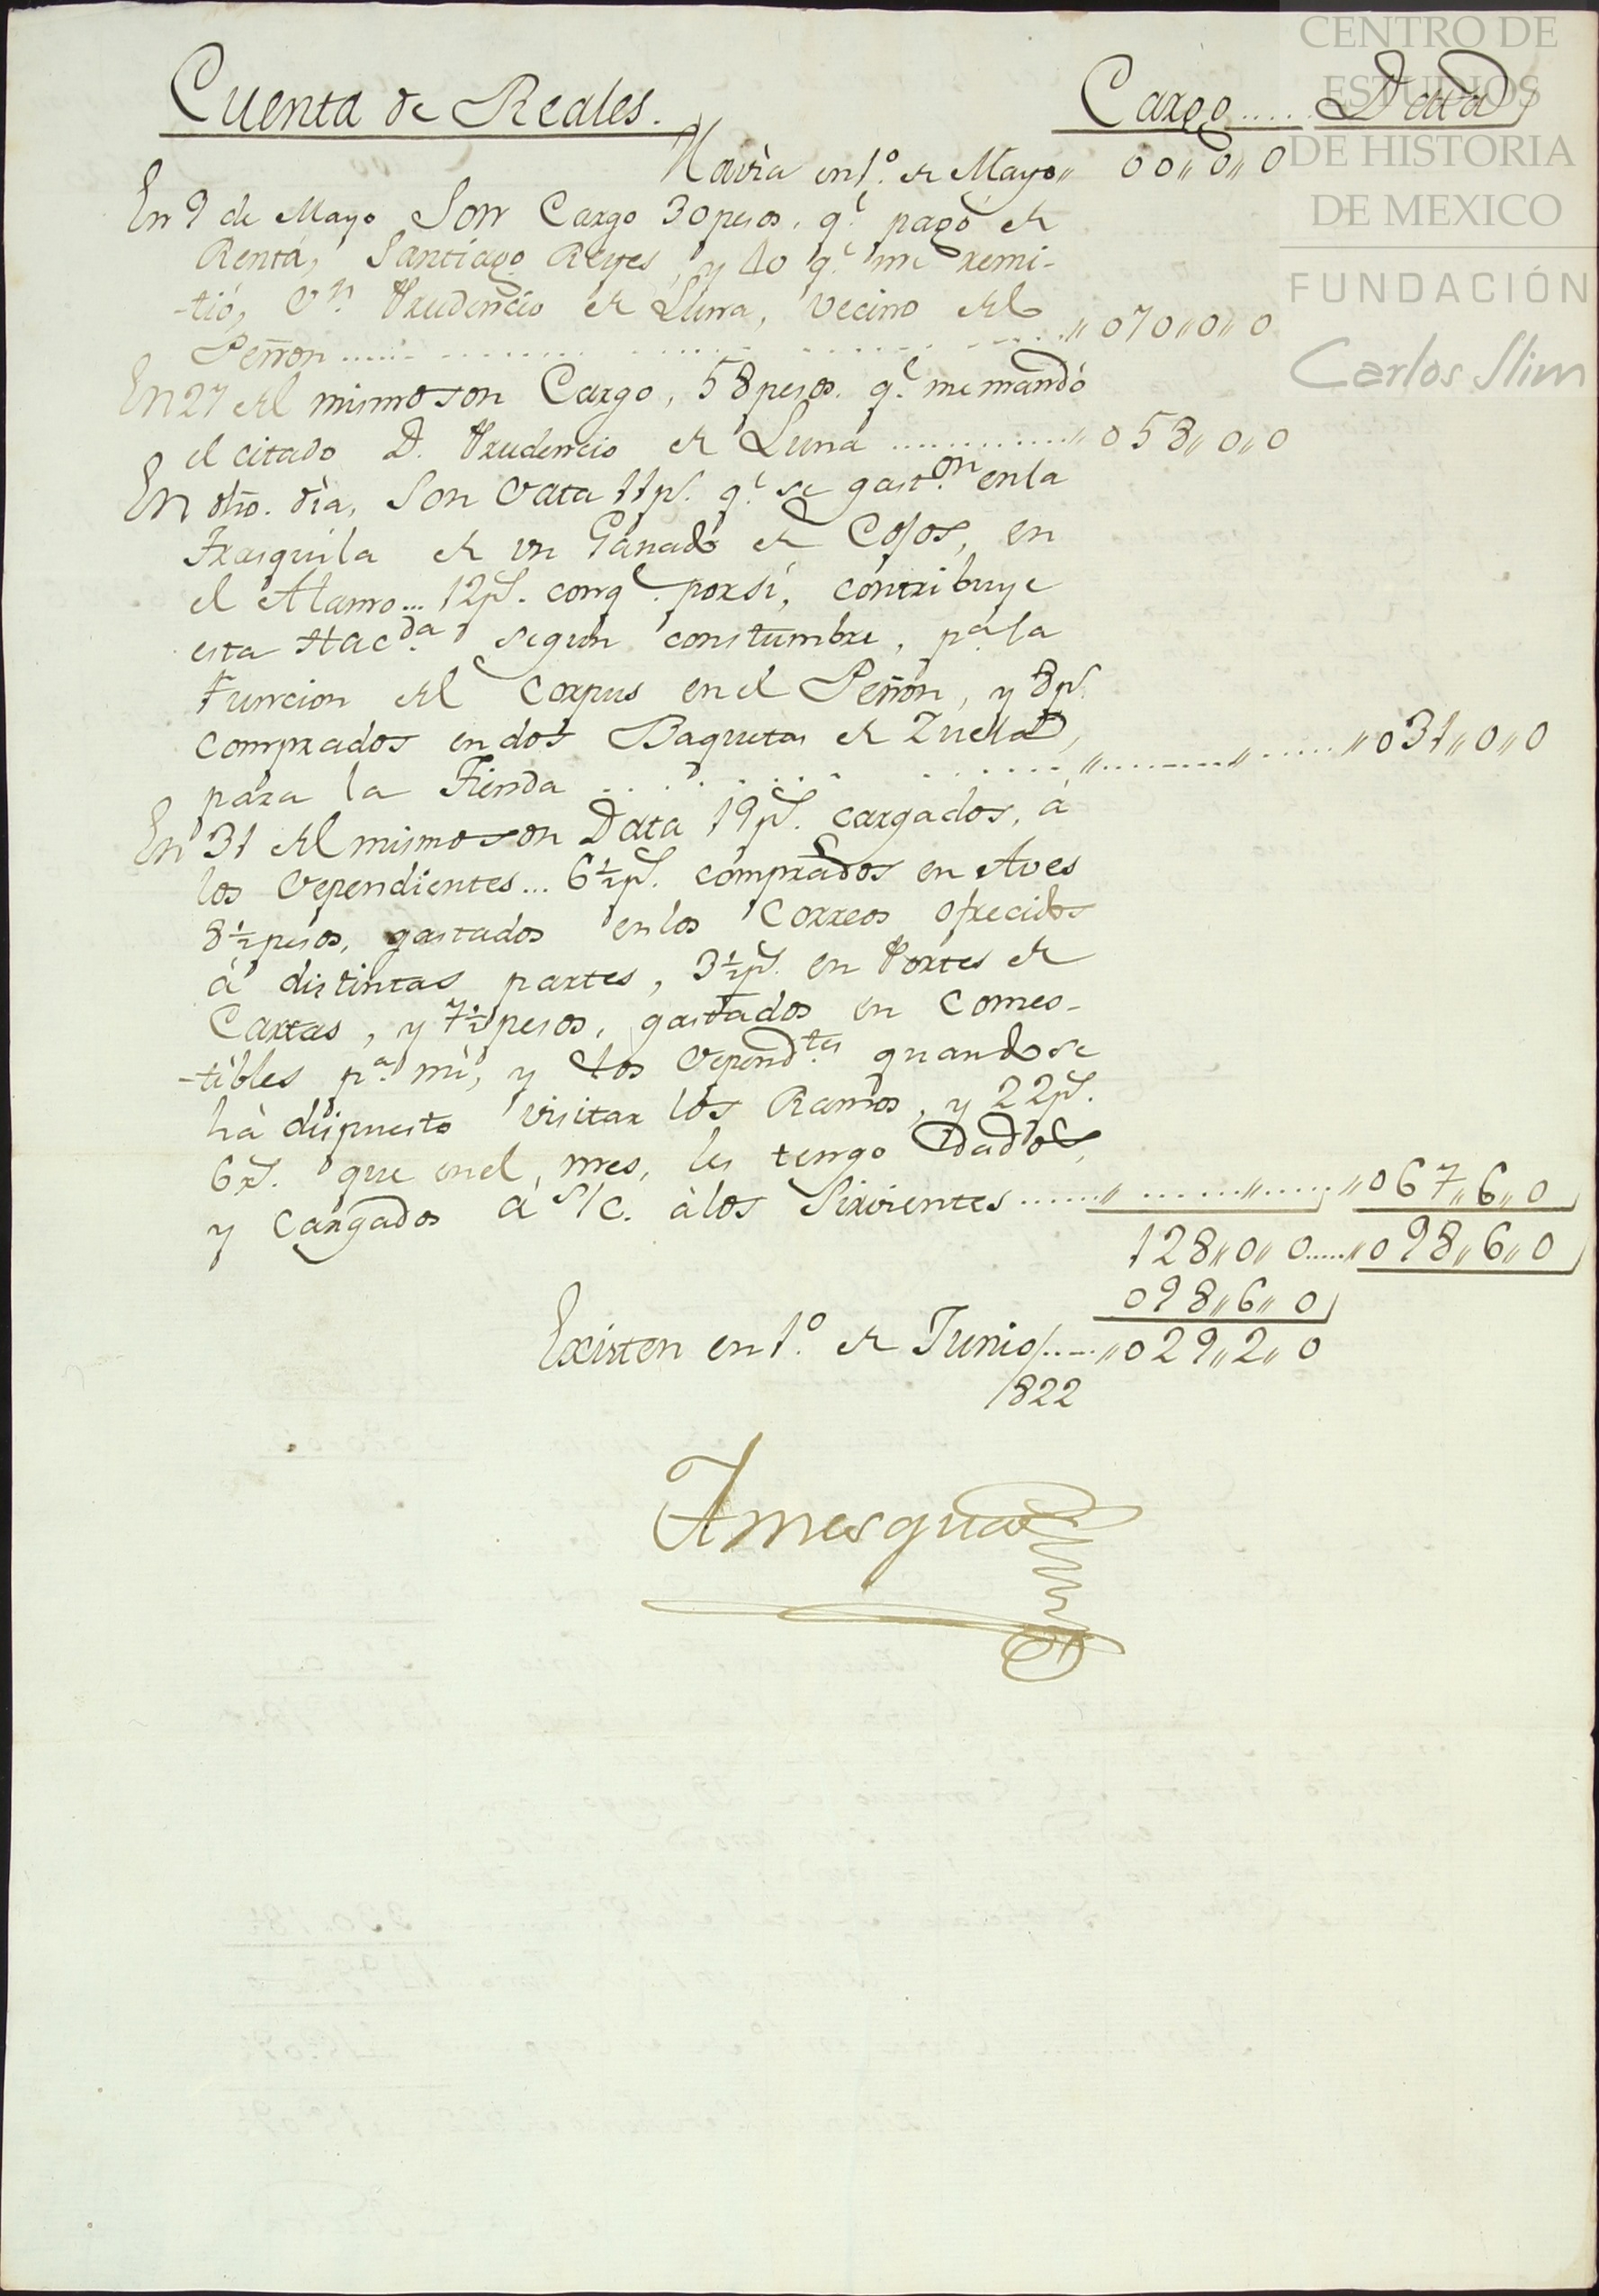 CENTRO DE
ESTUDIOS
DE HISTORIA
DE MEXICO
FUNDACIÓN
Carlos Slim
Cuenta de Reales. Cargo ..... Data
Havia en 1º. de Mayo,, 00,,0,,0
En 9 de Mayo Son Cargo 30 pesos, qe. pagó de
Renta, Santiago Reyes, y 40 qe. me remi-
-tió, Dn. Prudencio de Luna, vecino del
Peñon ........ ,,070,,0,,0
En 27 del mismo son Cargo, 58 pesos. qe. me mandó
el citado D. Prudencio de Luna ............. ,,058,,0,,0
En dho. dia, Son Data 11ps. qe. se gaston. en la
Trasquila de un Ganado de Cojos, en
el Alamo... 12ps. con qe. por sí, contribuye
esta Hacda. segun constumbre, pa. la
Funcion del Corpus en el Peñon, y 8ps.
comprados en dos Baquetas de Zuela,
para la Tienda ........ ,,.........,,...... ,,031,,0,,0
En 31 del mismo son Data 19ps. cargados, á
los Dependientes... 6½ps. comprados en Aves
8½ pesos, gastados en los Correos ofrecidos
á distintas partes, 3½ps. en Portes de
Cartas, y 7½ pesos, gastados en Comes-
-tibles pa. mi, y los Dependtes. quando se
há dispuesto visitar los Ramos, y 22ps.
6rs. que en el, mes, les tengo Dados,
y Cargados á S/C. á los Sirvientes ......,, .......,,..... ,,067,,6,,0
128,,0,,0.....,,098,,6,,0
098,,6,,0
Existen en 1º. de Junio/.....,,029,,2,,0
1822
Amesqua